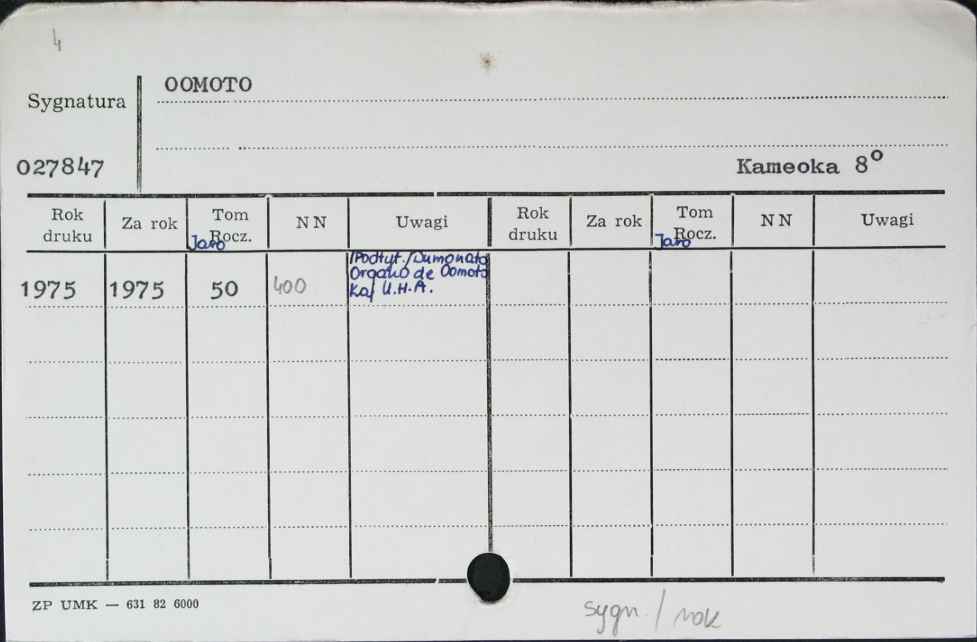 4
OOMOTO
Sygnatura
027847
Kameoka 8°
Rok druku Za rok Tom Rocz. Jaro NN Uwagi Rok druku Za rok Tom Rocz. Jaro NN Uwagi
/Podtyt./Dumonata
Organo de Oomoto
1975 1975 50 400 Kaj U.H.A.
ZP UMK — 631 82 6000
sygn. / rok